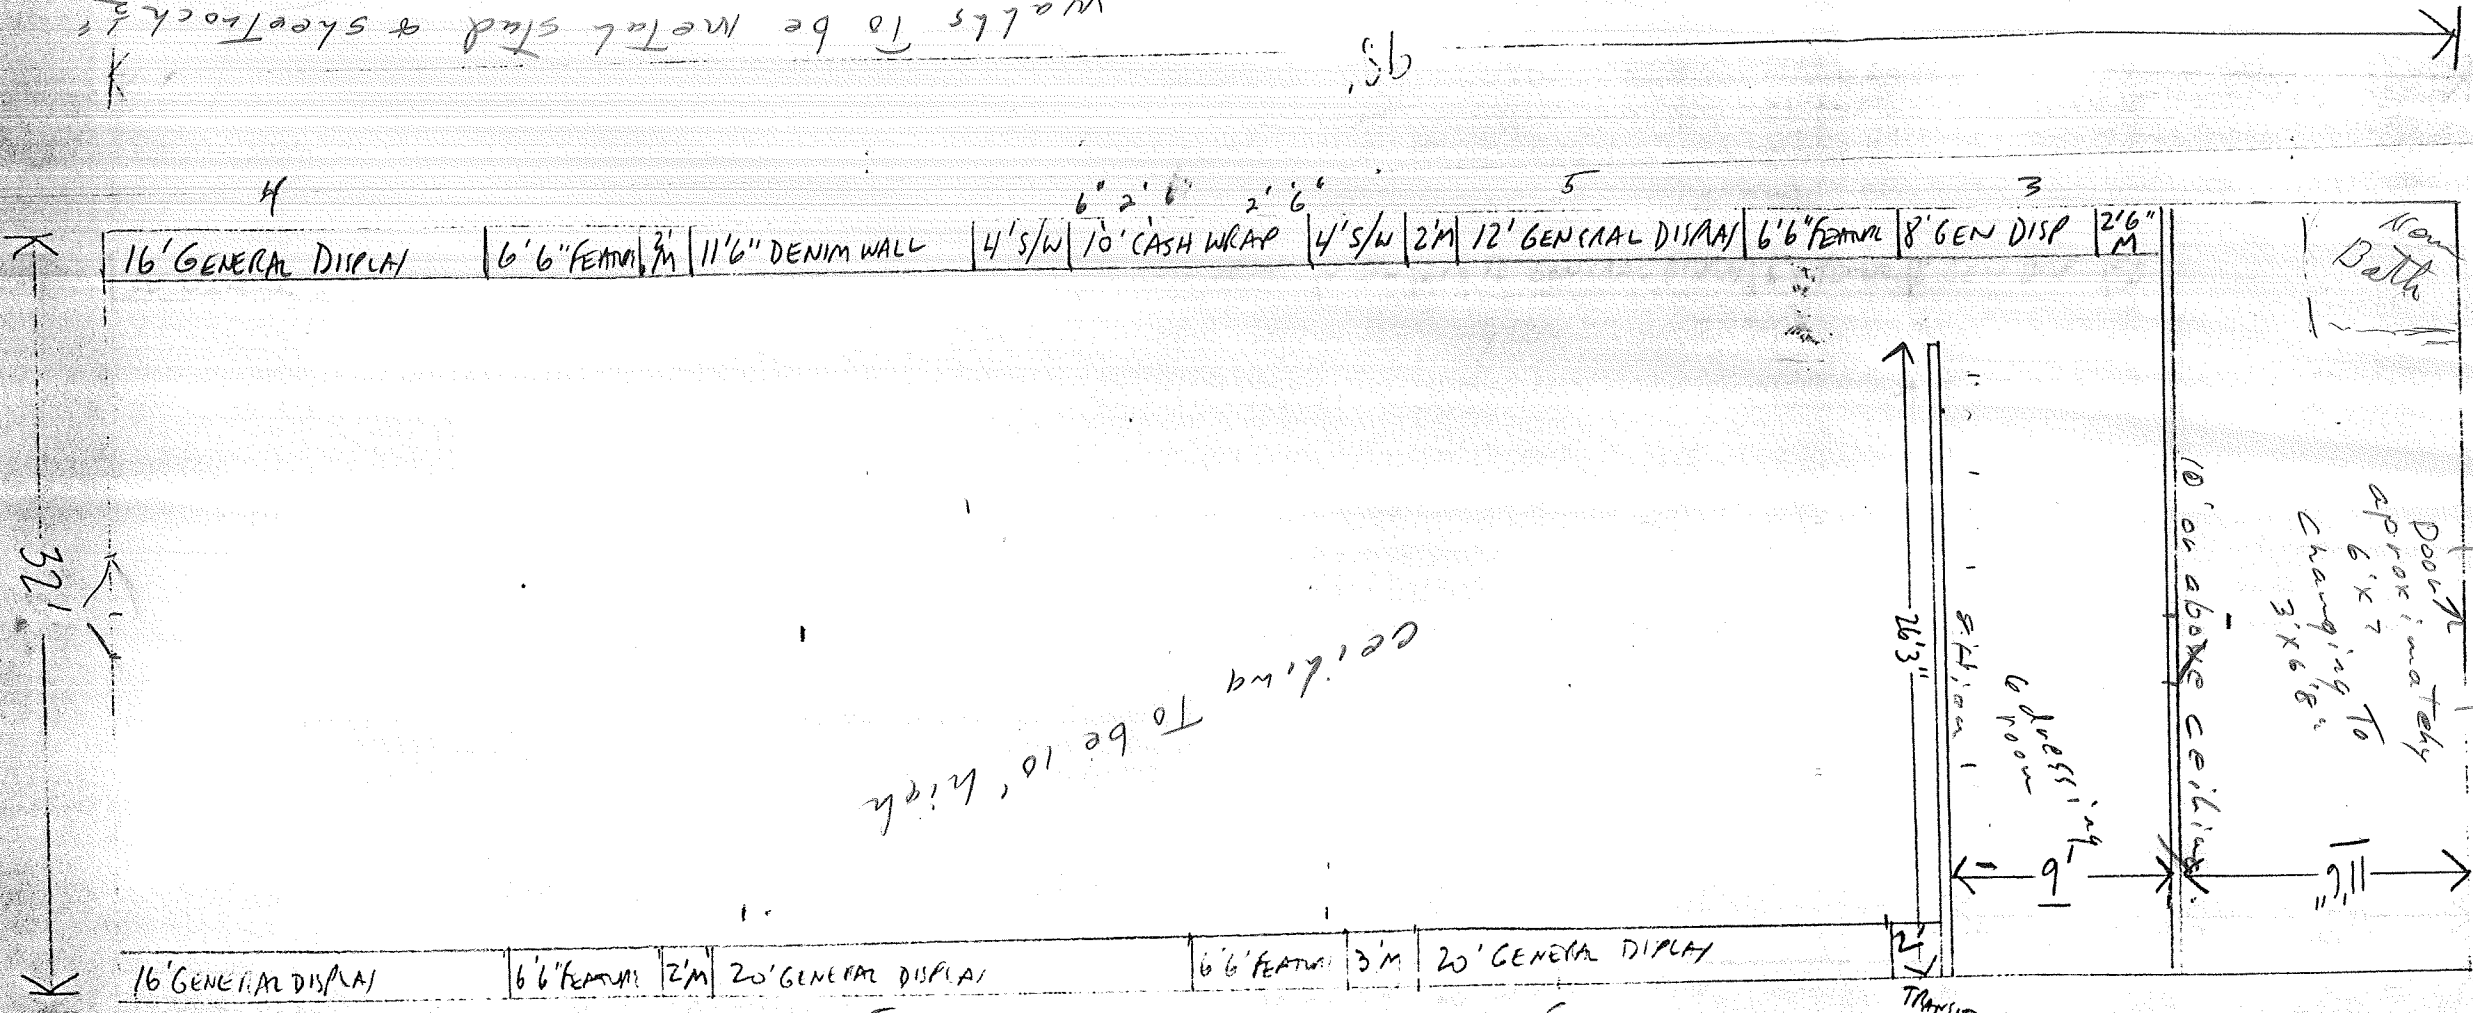 walls To be metal stud & sheetrock
98'
4
6" 2' 6" 2' 6"
5
3
16' GENERAL DISPLAY
6'6" FEATUR
2' M
11'6" DENIM WALL
4' S/W
10' CASH WRAP
4' S/W
2' M
12' GENERAL DISPLAY
6'6" FEATURE
8' GEN DISP
2'6"
M
Bath
32'
26'3"
6 dressing
room
10' or above ceiling
Door
aproximately
6'x7
changing To
3'x6'8"
ceiling To be 10' high
9'
11'6"
16' GENERAL DISPLAY
6'6" FEATUR
2' M
20' GENERAL DISPLAY
6'6' FEATUR
3' M
20' GENERAL DIPLAY
2'